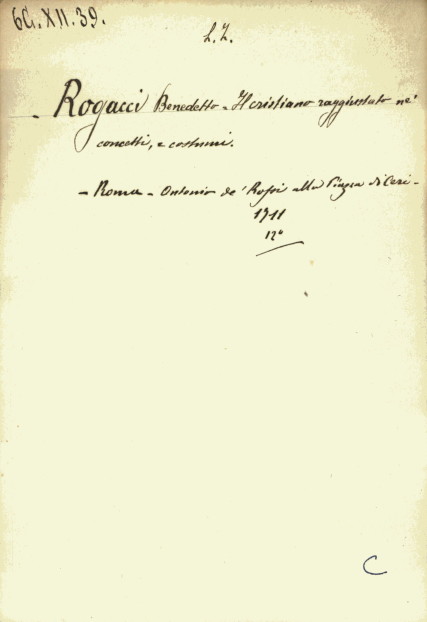 6G.XII.39.
L.Z.
- Rogacci Benedetto - Il cristiano raggiustato ne'
concetti, e costumi.
- Roma - Antonio de' Rossi alla Piazza di Ceri -
1711
12°
C